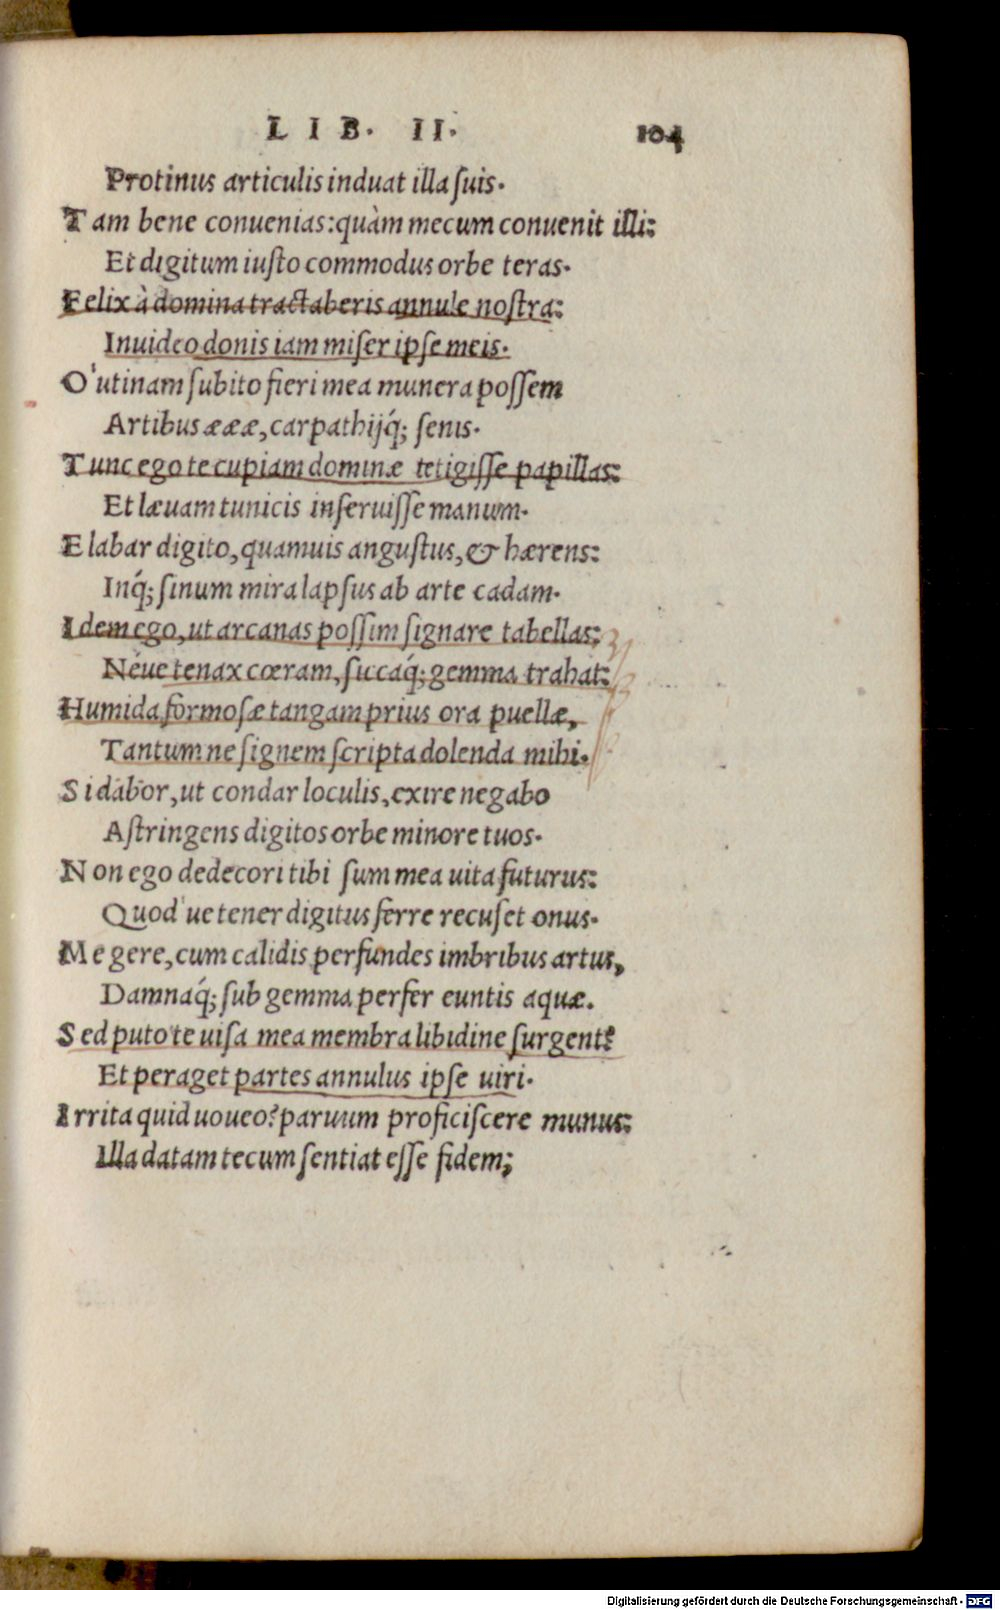 LIB. II. 104
Protinus articulis induat illa suis.
Tam bene conuenias: quàm mecum conuenit illi:
Et digitum iusto commodus orbe teras.
Felix à domina tractaberis annule nostra:
Inuideo donis iam miser ipse meis.
O' utinam subito fieri mea munera possem
Artibus ææ, carpathijq́; senis.
Tunc ego te cupiam dominæ tetigisse papillas:
Et læuam tunicis inseruisse manum.
Elabar digito, quamuis angustus, & hærens:
Inq́; sinum mira lapsus ab arte cadam.
Idem ego, ut arcanas possim signare tabellas;
Néue tenax cœram, siccaq́; gemma trahat:
Humida formosæ tangam prius ora puellæ,
Tantum ne signem scripta dolenda mihi.
Si dabor, ut condar loculis, exire negabo
Astringens digitos orbe minore tuos.
Non ego dedecori tibi sum mea uita futurus:
Quod'ue tener digitus ferre recuset onus.
Me gere, cum calidis perfundes imbribus artus,
Damnaq́; sub gemma perfer euntis aquæ.
Sed puto te uisa mea membra libidine surgent:
Et peraget partes annulus ipse uiri.
Irrita quid uoueo? paruum proficiscere munus:
Illa datam tecum sentiat esse fidem;
Digitalisierung gefördert durch die Deutsche Forschungsgemeinschaft - DFG